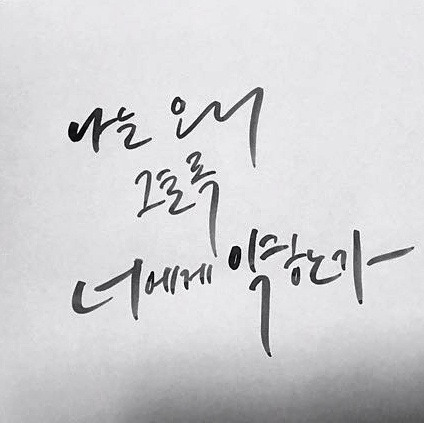 나는 왜
그토록
너에게 약한가